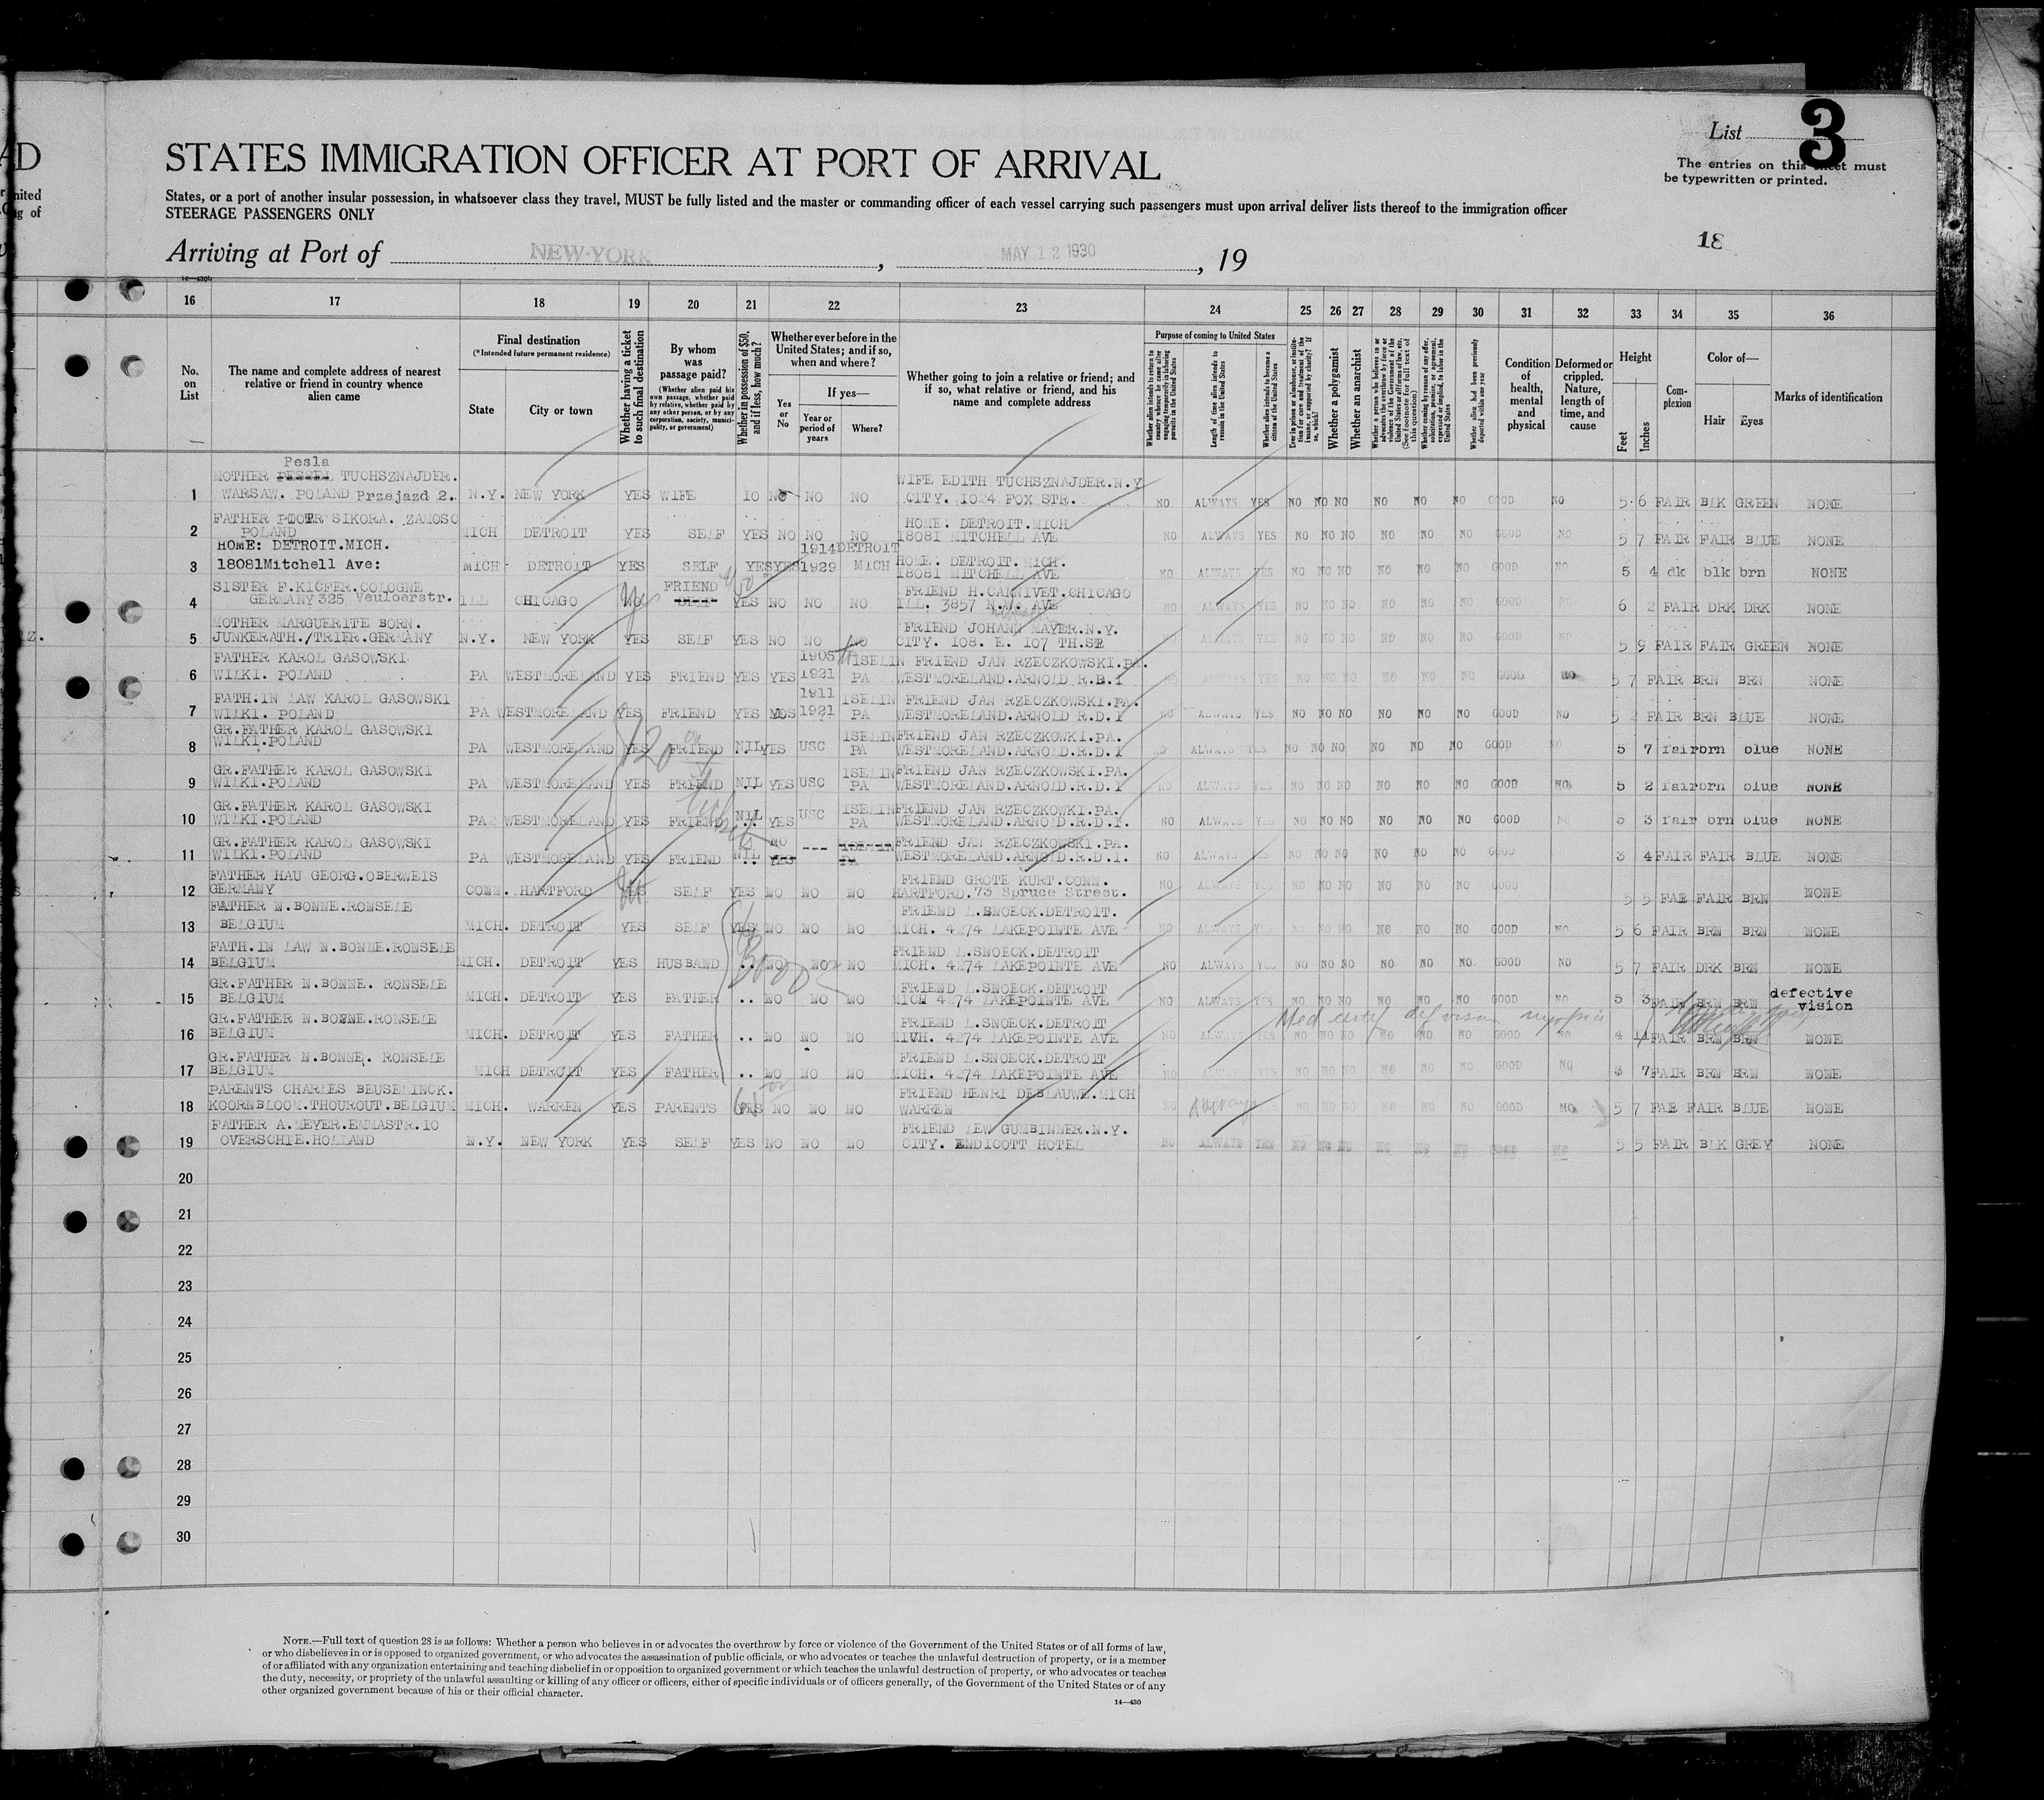 List 3
The entries on this sheet must
be typewritten or printed.
STATES IMMIGRATION OFFICER AT PORT OF ARRIVAL
States, or a port of another insular possession, in whatsoever class they travel, MUST be fully listed and the master or commanding officer of each vessel carrying such passengers must upon arrival deliver lists thereof to the immigration officer
STEERAGE PASSENGERS ONLY
18
Arriving at Port of NEW-YORK, MAY 12 1930, 19
16 17 18 19 20 21 22 23 24 25 26 27 28 29 30 31 32 33 34 35 36
No. on List
The name and complete address of nearest relative or friend in country whence alien came
Final destination
(*Intended future permanent residence)
State
City or town
Whether having a ticket to such final destination
By whom was passage paid?
(Whether alien paid his own passage, whether paid by relative, whether paid by any other person, or by any corporation, society, municipality, or government)
Whether in possession of $50, and if less, how much?
Whether ever before in the United States; and if so, when and where?
Yes or No
If yes—
Year or period of years
Where?
Whether going to join a relative or friend; and if so, what relative or friend, and his name and complete address
Purpose of coming to United States
Whether alien intends to return to country whence he came after engaging temporarily in laboring pursuits in the United States
Length of time alien intends to remain in the United States
Whether alien intends to become a citizen of the United States
Whether a polygamist
Whether an anarchist
Condition of health, mental and physical
Deformed or crippled. Nature, length of time, and cause
Height
Feet
Inches
Complexion
Color of—
Hair Eyes
Marks of identification
Pesla
MOTHER TUCHSZNAJDER. WIFE EDITH TUCHSZNAJDER.N.Y
1 WARSAW. POLAND Przejazd 2. N.Y. NEW YORK YES WIFE 10 NO NO NO CITY. 1024 FOX STR. NO ALWAYS YES NO NO NO NO NO NO GOOD NO 5 6 FAIR BLK GREEN NONE
FATHER PIOTR SIKORA. ZAMOSC HOME: DETROIT.MICH
2 POLAND MICH DETROIT YES SELF YES NO NO NO 18081 MITCHELL AVE NO ALWAYS YES NO NO NO NO NO NO GOOD NO 5 7 FAIR FAIR BLUE NONE
HOME: DETROIT.MICH. 1914 DETROIT HOME: DETROIT. MICH.
3 18081Mitchell Ave: MICH DETROIT YES SELF YES YES 1929 MICH 18081 MITCHELL AVE NO ALWAYS YES NO NO NO NO NO NO GOOD NO 5 4 dk blk brn NONE
SISTER F.KICFER.COLOGNE FRIEND FRIEND H.CARNIVET.CHICAGO
4 GERMANY 325 Veuloerstr. ILL CHICAGO NO YES NO NO NO ILL. 3857 N.W. AVE NO ALWAYS YES NO NO NO NO NO NO GOOD NO 6 2 FAIR DRK DRK NONE
MOTHER MARGUERITE BORN. FRIEND JOHANN MAYER.N.Y.
5 JUNKERATH./TRIER.GERMANY N.Y. NEW YORK YES SELF YES NO NO NO CITY. 108. E. 107 TH.STR ALWAYS YES NO NO NO NO NO NO GOOD NO 5 9 FAIR FAIR GREEN NONE
FATHER KAROL GASOWSKI 1905 ISELIN FRIEND JAN RZECZKOWSKI.PA.
6 WILKI. POLAND PA WESTMORELAND YES FRIEND YES YES 1921 PA WESTMORELAND.ARNOLD R.D.I NO ALWAYS YES NO NO NO NO NO NO GOOD NO 5 7 FAIR BRN BRN NONE
FATH.IN LAW KAROL GASOWSKI 1911 ISELIN FRIEND JAN RZECZKOWSKI.PA.
7 WILKI. POLAND PA WESTMORELAND YES FRIEND YES YES 1921 PA WESTMORELAND.ARNOLD R.D.I NO ALWAYS YES NO NO NO NO NO NO GOOD NO 5 2 FAIR BRN BLUE NONE
GR.FATHER KAROL GASOWSKI ISELIN FRIEND JAN RZECZKOWKI.PA
8 WILKI.POLAND PA WESTMORELAND YES FRIEND NIL YES USC PA WESTMORELAND.ARNOLD.R.D.I NO ALWAYS YES NO NO NO NO NO NO GOOD NO 5 7 fair brn blue NONE
GR.FATHER KAROL GASOWSKI ISELIN FRIEND JAN RZECZKOWSKI.PA.
9 WILKI.POLAND PA WESTMORELAND YES FRIEND NIL YES USC PA WESTMORELAND.ARNOLD.R.D.I NO ALWAYS YES NO NO NO NO NO NO GOOD NO 5 2 fair brn blue NONE
GR.FATHER KAROL GASOWSKI NIL USC ISELIN FRIEND JAN RZECZKOWKI.PA.
10 WILKI.POLAND PA WESTMORELAND YES FRIEND .. YES PA WESTMORELAND.ARNOLD.R.D.I. NO ALWAYS YES NO NO NO NO NO NO GOOD NO 5 3 fair brn blue NONE
GR.FATHER KAROL GASOWSKI NO --- ISELIN FRIEND JAN RZECZKOWSKI.PA.
11 WILKI.POLAND PA WESTMORELAND YES FRIEND NIL YES PA WESTMORELAND.ARNOLD.R.D.I. NO ALWAYS YES NO NO NO NO NO NO GOOD NO 3 4 FAIR FAIR BLUE NONE
FATHER HAU GEORG.OBERWEIS FRIEND GROTE KURT.CONN.
12 GERMANY CONN. HARTFORD YES SELF YES NO NO NO HARTFORD.73 Spruce Street. NO ALWAYS YES NO NO NO NO NO NO GOOD 5 5 FAIR FAIR BRN NONE
FATHER N.BONNE.RONSELE FRIEND L.SNOECK.DETROIT.
13 BELGIUM MICH. DETROIT YES SELF YES NO NO NO MICH. 4274 LAKEPOINTE AVE NO ALWAYS YES NO NO NO NO NO NO GOOD NO 5 6 FAIR BRN BRN NONE
FATH.IN LAW N.BONNE.RONSELE FRIEND L.SNOECK.DETROIT
14 BELGIUM MICH. DETROIT YES HUSBAND .. NO NO NO MICH. 4274 LAKEPOINTE AVE NO ALWAYS YES NO NO NO NO NO NO GOOD NO 5 7 FAIR DRK BRN NONE
GR.FATHER N.BONNE. RONSELE FRIEND L.SNOECK.DETROIT defective
15 BELGIUM MICH. DETROIT YES FATHER .. NO NO NO MICH 4274 LAKEPOINTE AVE NO ALWAYS YES NO NO NO NO NO NO GOOD NO 5 3 FAIR BRN BRN vision
Med cert def vision myopia
GR.FATHER N.BONNE.RONSELE FRIEND L.SNOECK.DETROIT
16 BELGIUM MICH. DETROIT YES FATHER .. NO NO NO MIVH. 4274 LAKEPOINTE AVE NO ALWAYS YES NO NO NO NO NO NO GOOD NO 4 11 FAIR BRN BRN NONE
GR.FATHER N.BONNE. RONSELE FRIEND L.SNOECK.DETROIT
17 BELGIUM MICH DETROIT YES FATHER .. NO NO NO MICH. 4274 LAKEPOINTE AVE ALWAYS YES NO NO NO NO NO NO GOOD NO 3 7 FAIR BRN BRN NONE
PARENTS CHARLES BEUSELINCK. FRIEND HENRI DEBLAUWE.MICH
18 KOORNBLOOM.THOUROUT.BELGIUM MICH. WARREN YES PARENTS YES NO NO NO WARREN NO always NO NO NO NO NO NO GOOD NO 5 7 FAR FAIR BLUE NONE
FATHER A.MEYER.EMMASTR.10 FRIEND LEW GUMBINNER.N.Y.
19 OVERSCHIE.HOLLAND N.Y. NEW YORK YES SELF YES NO NO NO CITY. ENDICOTT HOTEL NO ALWAYS YES NO NO NO NO NO NO GOOD NO 5 5 FAIR BLK GREY NONE
20
21
22
23
24
25
26
27
28
29
30
NOTE.—Full text of question 28 is as follows: Whether a person who believes in or advocates the overthrow by force or violence of the Government of the United States or of all forms of law,
or who disbelieves in or is opposed to organized government, or who advocates the assassination of public officials, or who advocates or teaches the unlawful destruction of property, or is a member
of or affiliated with any organization entertaining and teaching disbelief in or opposition to organized government or which teaches the unlawful destruction of property, or who advocates or teaches
the duty, necessity, or propriety of the unlawful assaulting or killing of any officer or officers, either of specific individuals or of officers generally, of the Government of the United States or of any
other organized government because of his or their official character.
14—430